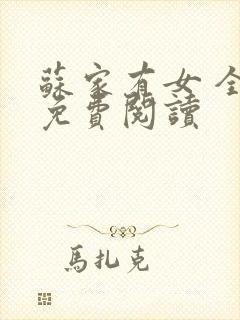 蘇家有女 全
免費閱讀
馬扎克